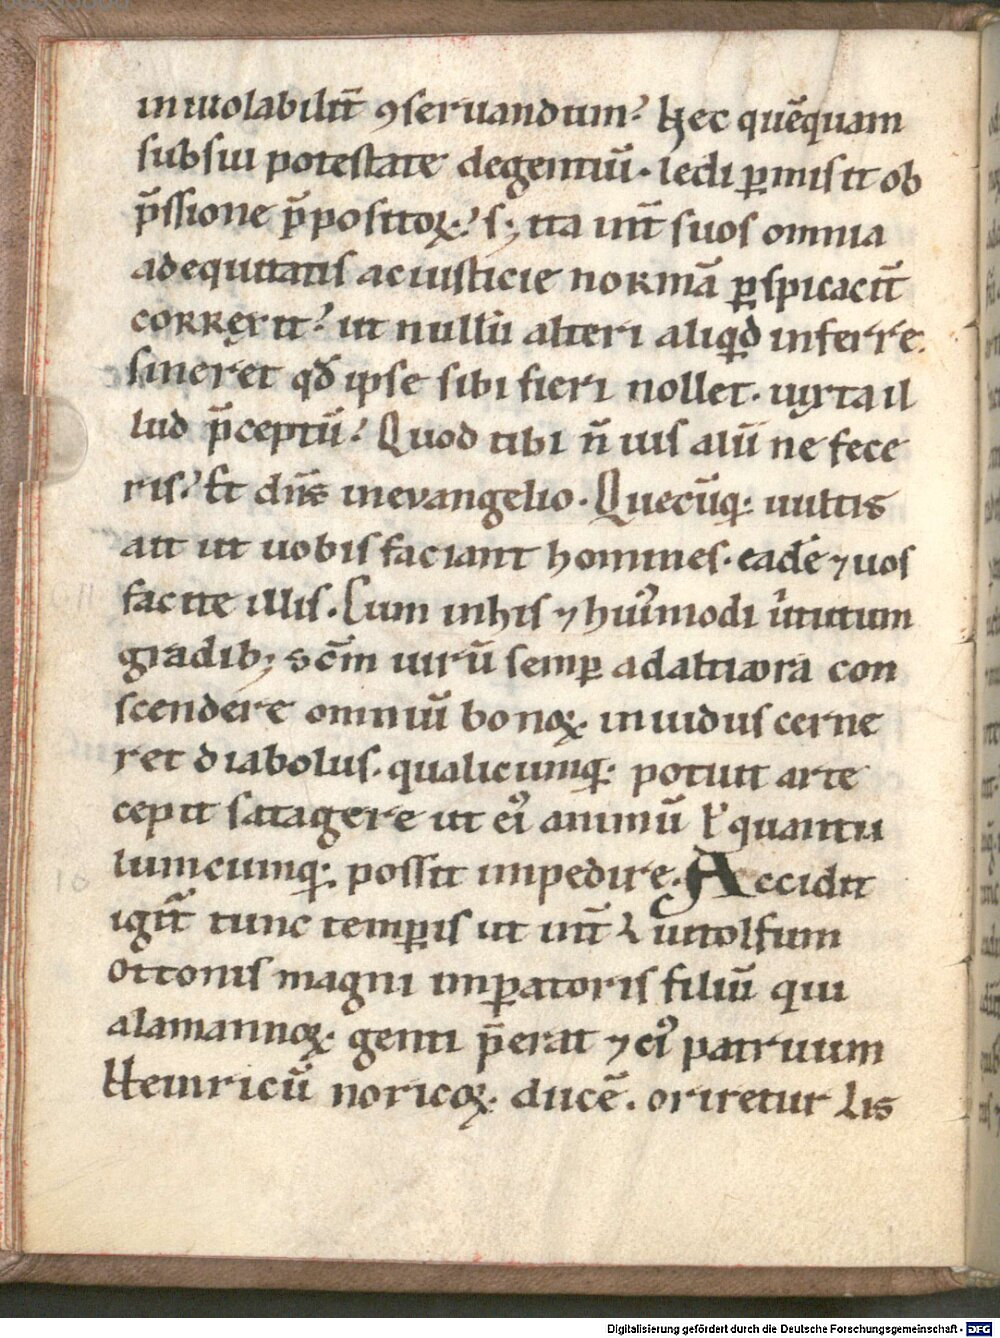 inuiolabilit̄ ꝯseruandum? Hec quē quam
sub sui potestate degentiū· ledi ꝑmisit ob
p̄ssione p̄positoꝝ·? s; ita int̄ suos omnia
ad equitatis ac iusticie normā ꝑspicacit̄
correxit? ut nullū alteri aliqd̄ inferre
sineret qd̄ ipse sibi fieri nollet· iuxta il
lud p̄ceptū? Quod tibi n̄ uis alii ne fece
ris? Et dn̄s in evangelio· Quecūq; uultis
ait ut uobis faciant homines· eadē ⁊ uos
facite illis. Cum in his ⁊ hui9modi u̓tutum
gradib; sc̄m uirū semꝑ ad altiora con
scendere omniū bonoꝝ· inuidus cerne
ret diabolus· qualicumq; potuit arte
cepit satagere ut ei9 animū ł quantu
lumcumq; possit impedire. Accidit
igit̄ tunc temꝑis ut int̄ Luitolfum
ottonis magni imꝑatoris filiū qui
alamannoꝝ· genti p̄erat ⁊ ei9 patruum
Heinricū noricoꝝ· ducē· oriretur lis
Digitalisierung gefördert durch die Deutsche Forschungsgemeinschaft - DFG